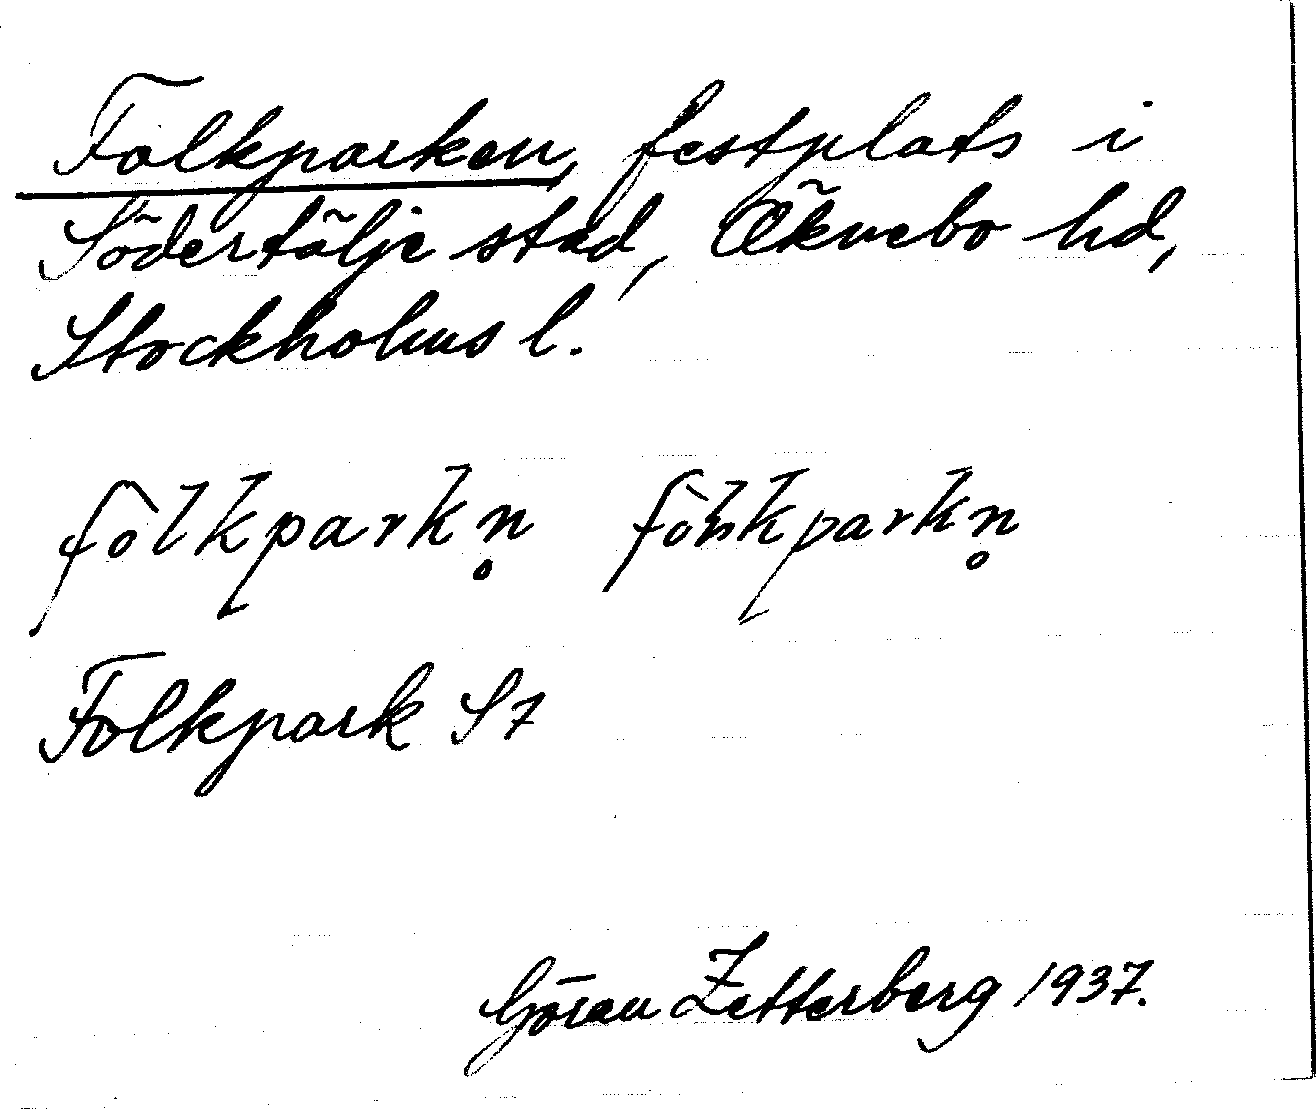 Folkparken, festplats i
Södertälje stad, Öknebo hd,
Stockholms l.
fòlkparkn̥ fòkparkn̥
Folkpark S7
Göran Zetterberg 1937.